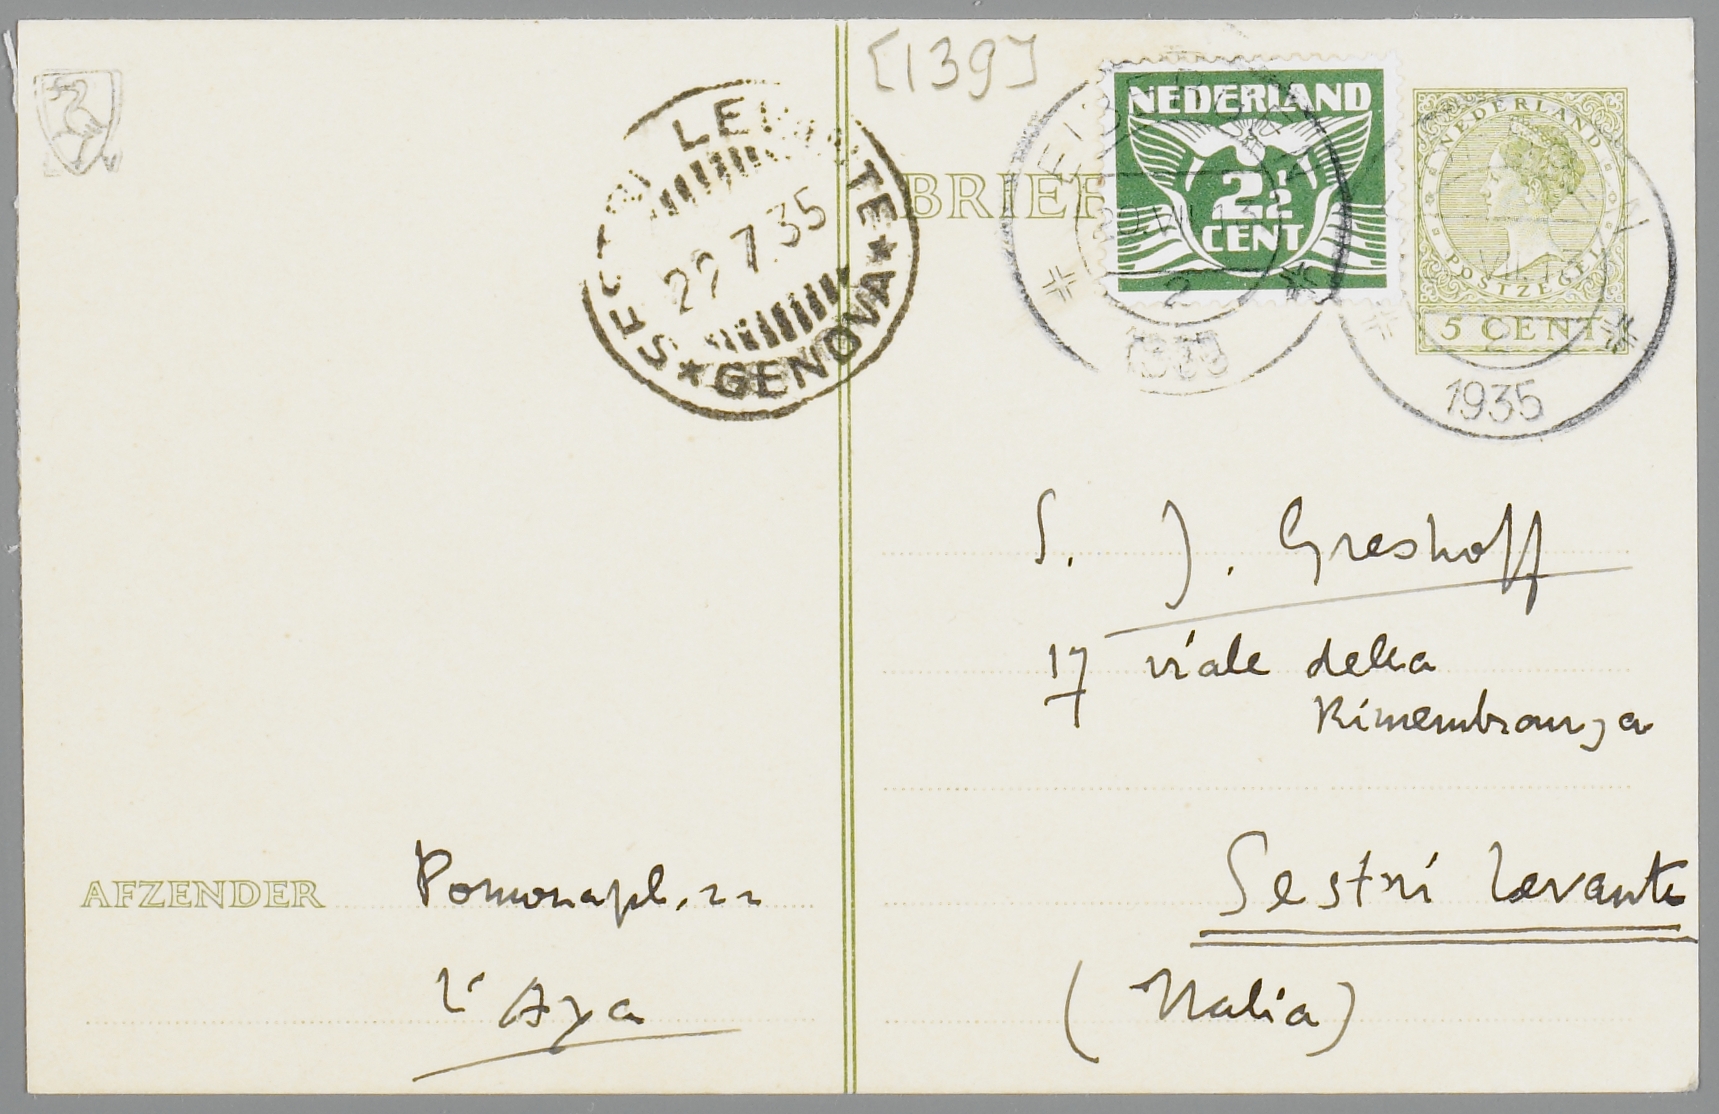 [139]
SESTRI LEVANTE
22 7.35
* GENOVA *
BRIEF
NEDERLAND
2½
CENT
2
1935
NEDERLAND
POSTZEGEL
5 CENT
2
1935
S. J. Greshoff
17 viale della
Rimembranza
Sestri Levante
(Italia)
AFZENDER Pomonapl. 22
l'Aya